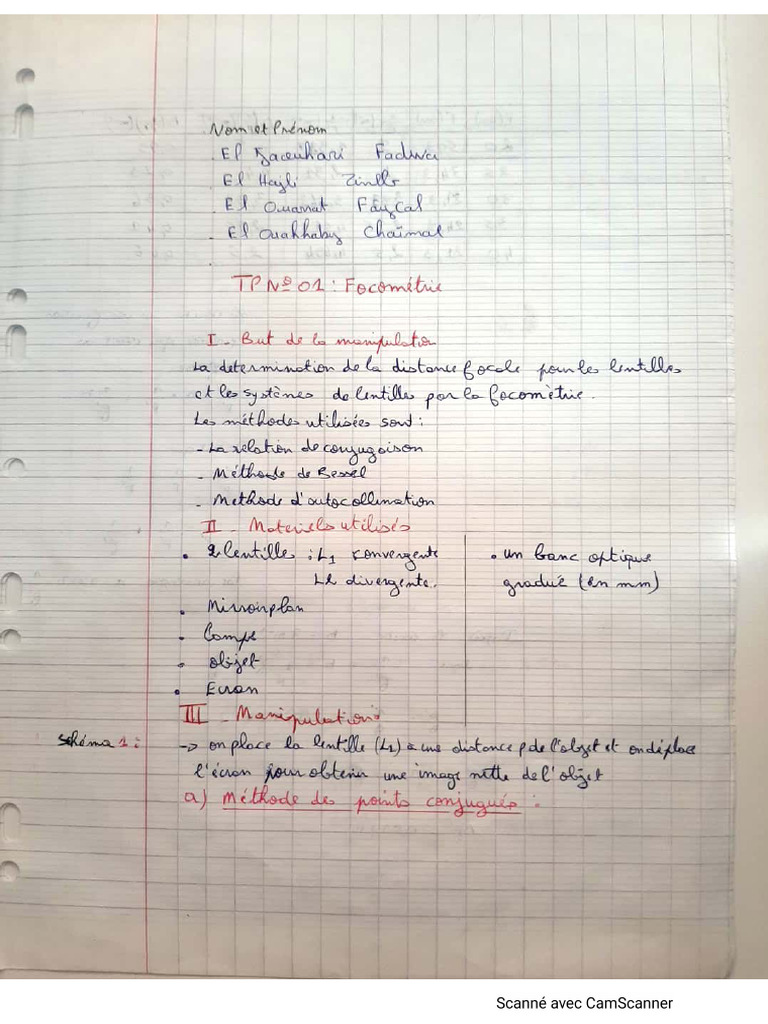 Nom et Prénom
. El Fadwa
. El Hajli
. El Ouamat Fayçal
. El Ouahhaby Chaïmae
TP Nº 01 : Focométrie
I - But de la manipulation
La détermination de la distance focale pour les lentilles
et les systèmes de lentille par la focomètrie.
Les méthodes utilisées sont :
- La relation de conjugaison
- Méthode de Bessel
- Methode d'autocollimation
II - Materiels utilisés
• 2 lentilles : L1 convergente
L2 divergente.
• Miroir plan
•
• objet
• Ecran
• un banc optique
gradué (en mm)
III - Manipulation :
schéma 1 : -> on place la lentille (L1) à une distance p de l'objet et on déplace
l'écran pour obtenir une image nette de l'objet
a) Méthode des points conjugués :
Scanné avec CamScanner